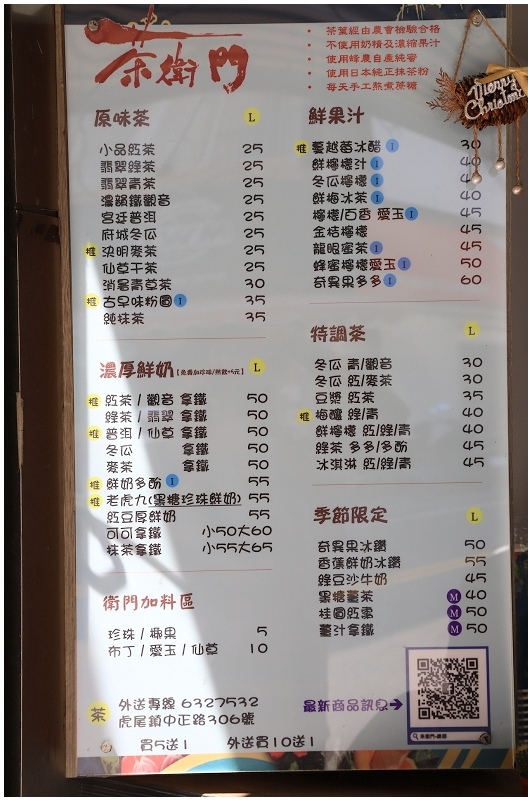 茶衛門
• 茶葉經由農會檢驗合格
• 不使用奶精及濃縮果汁
• 使用蜂農自產純蜜
• 使用日本純正抹茶粉
• 每天手工熬煮蔗糖
Merry Christmas
原味茶 L
小品紅茶 25
翡翠綠茶 25
翡翠青茶 25
濃韻鐵觀音 25
宮廷普洱 25
府城冬瓜 25
推 決明麥茶 25
仙草干茶 25
消暑青草茶 30
推 古早味粉圓 I 35
純抹茶 35
濃厚鮮奶 【免費加珍珠/熱飲+5元】 L
推 紅茶 / 觀音 拿鐵 50
綠茶 / 翡翠 拿鐵 50
推 普洱 / 仙草 拿鐵 50
冬瓜 拿鐵 50
麥茶 拿鐵 50
推 鮮奶多酚 I 55
推 老虎九(黑糖珍珠鮮奶) 55
紅豆厚鮮奶 55
可可拿鐵 小50大60
抹茶拿鐵 小55大65
衛門加料區
珍珠 / 椰果 5
布丁 / 愛玉 / 仙草 10
茶 外送專線 6327532
虎尾鎮中正路306號
買5送1 外送買10送1
鮮果汁
推 蔓越莓冰醋 I 30
鮮檸檬汁 I 40
冬瓜檸檬 I 40
鮮梅冰茶 I 40
檸檬/百香 愛玉 I 45
金桔檸檬 45
龍眼蜜茶 I 45
蜂蜜檸檬愛玉 I 50
奇異果多多 I 60
特調茶 L
冬瓜 青/觀音 30
冬瓜 紅/麥茶 30
豆漿 紅茶 35
推 梅釀 綠/青 40
鮮檸檬 紅/綠/青 40
綠茶 多多/多酚 45
冰淇淋 紅/綠/青 45
季節限定 L
奇異果冰鑽 50
香蕉鮮奶冰鑽 55
綠豆沙牛奶 45
黑糖薑茶 M 40
桂圓紅棗 M 50
薑汁拿鐵 M 50
最新商品訊息→
茶衛門-總部